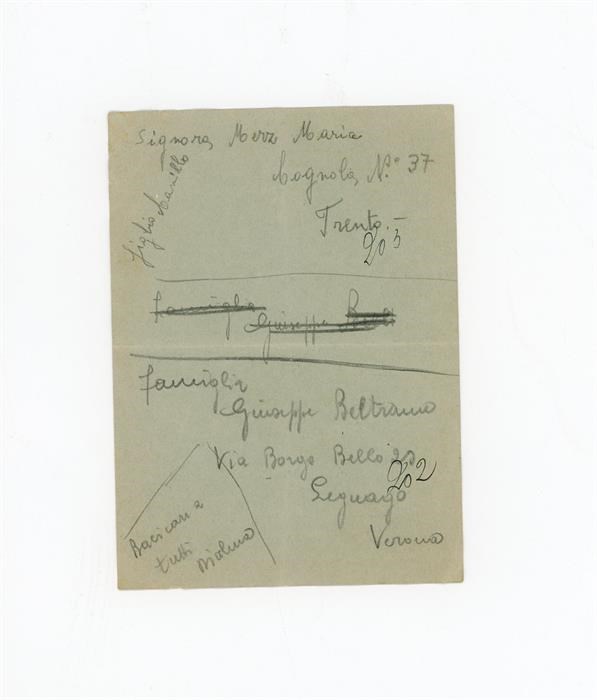 Signora Merz Maria
Cognola N.° 37
Trento.-
203
figlio Camillo
Famiglia
Giuseppe
Famiglia
Giuseppe Beltramo
Via Borgo Bello 20
202
Legnago
Verona
Baci cari a
tutti